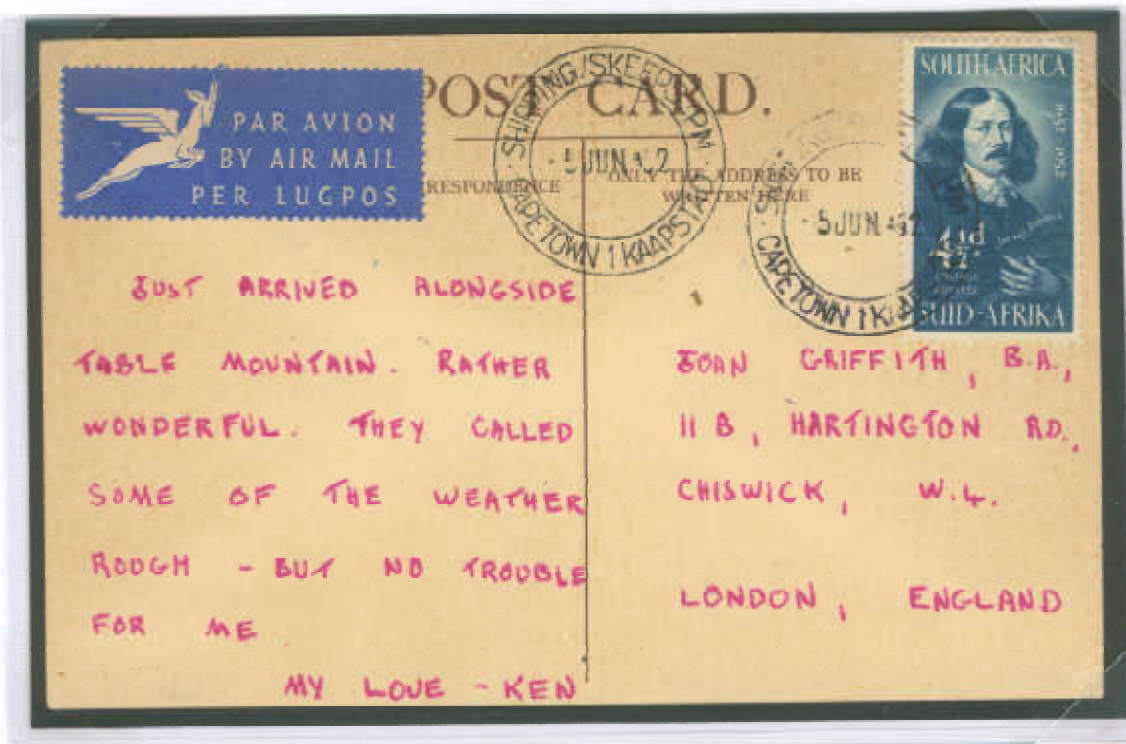 POST CARD.
PAR AVION
BY AIR MAIL
PER LUGPOS
RESPONDENCE
ONLY THE ADDRESS TO BE
WRITTEN HERE
SHIPPING/SKEEPV PM
5 JUN 52
CAPETOWN 1 KAAPSTAD
5 JUN 52
CAPETOWN 1
SOUTH AFRICA
4½d
SUID-AFRIKA
JUST ARRIVED ALONGSIDE
TABLE MOUNTAIN. RATHER
WONDERFUL. THEY CALLED
SOME OF THE WEATHER
ROUGH - BUT NO TROUBLE
FOR ME
MY LOVE - KEN
JOAN GRIFFITH, B.A.,
11 B, HARTINGTON RD.,
CHISWICK, W.4.
LONDON, ENGLAND